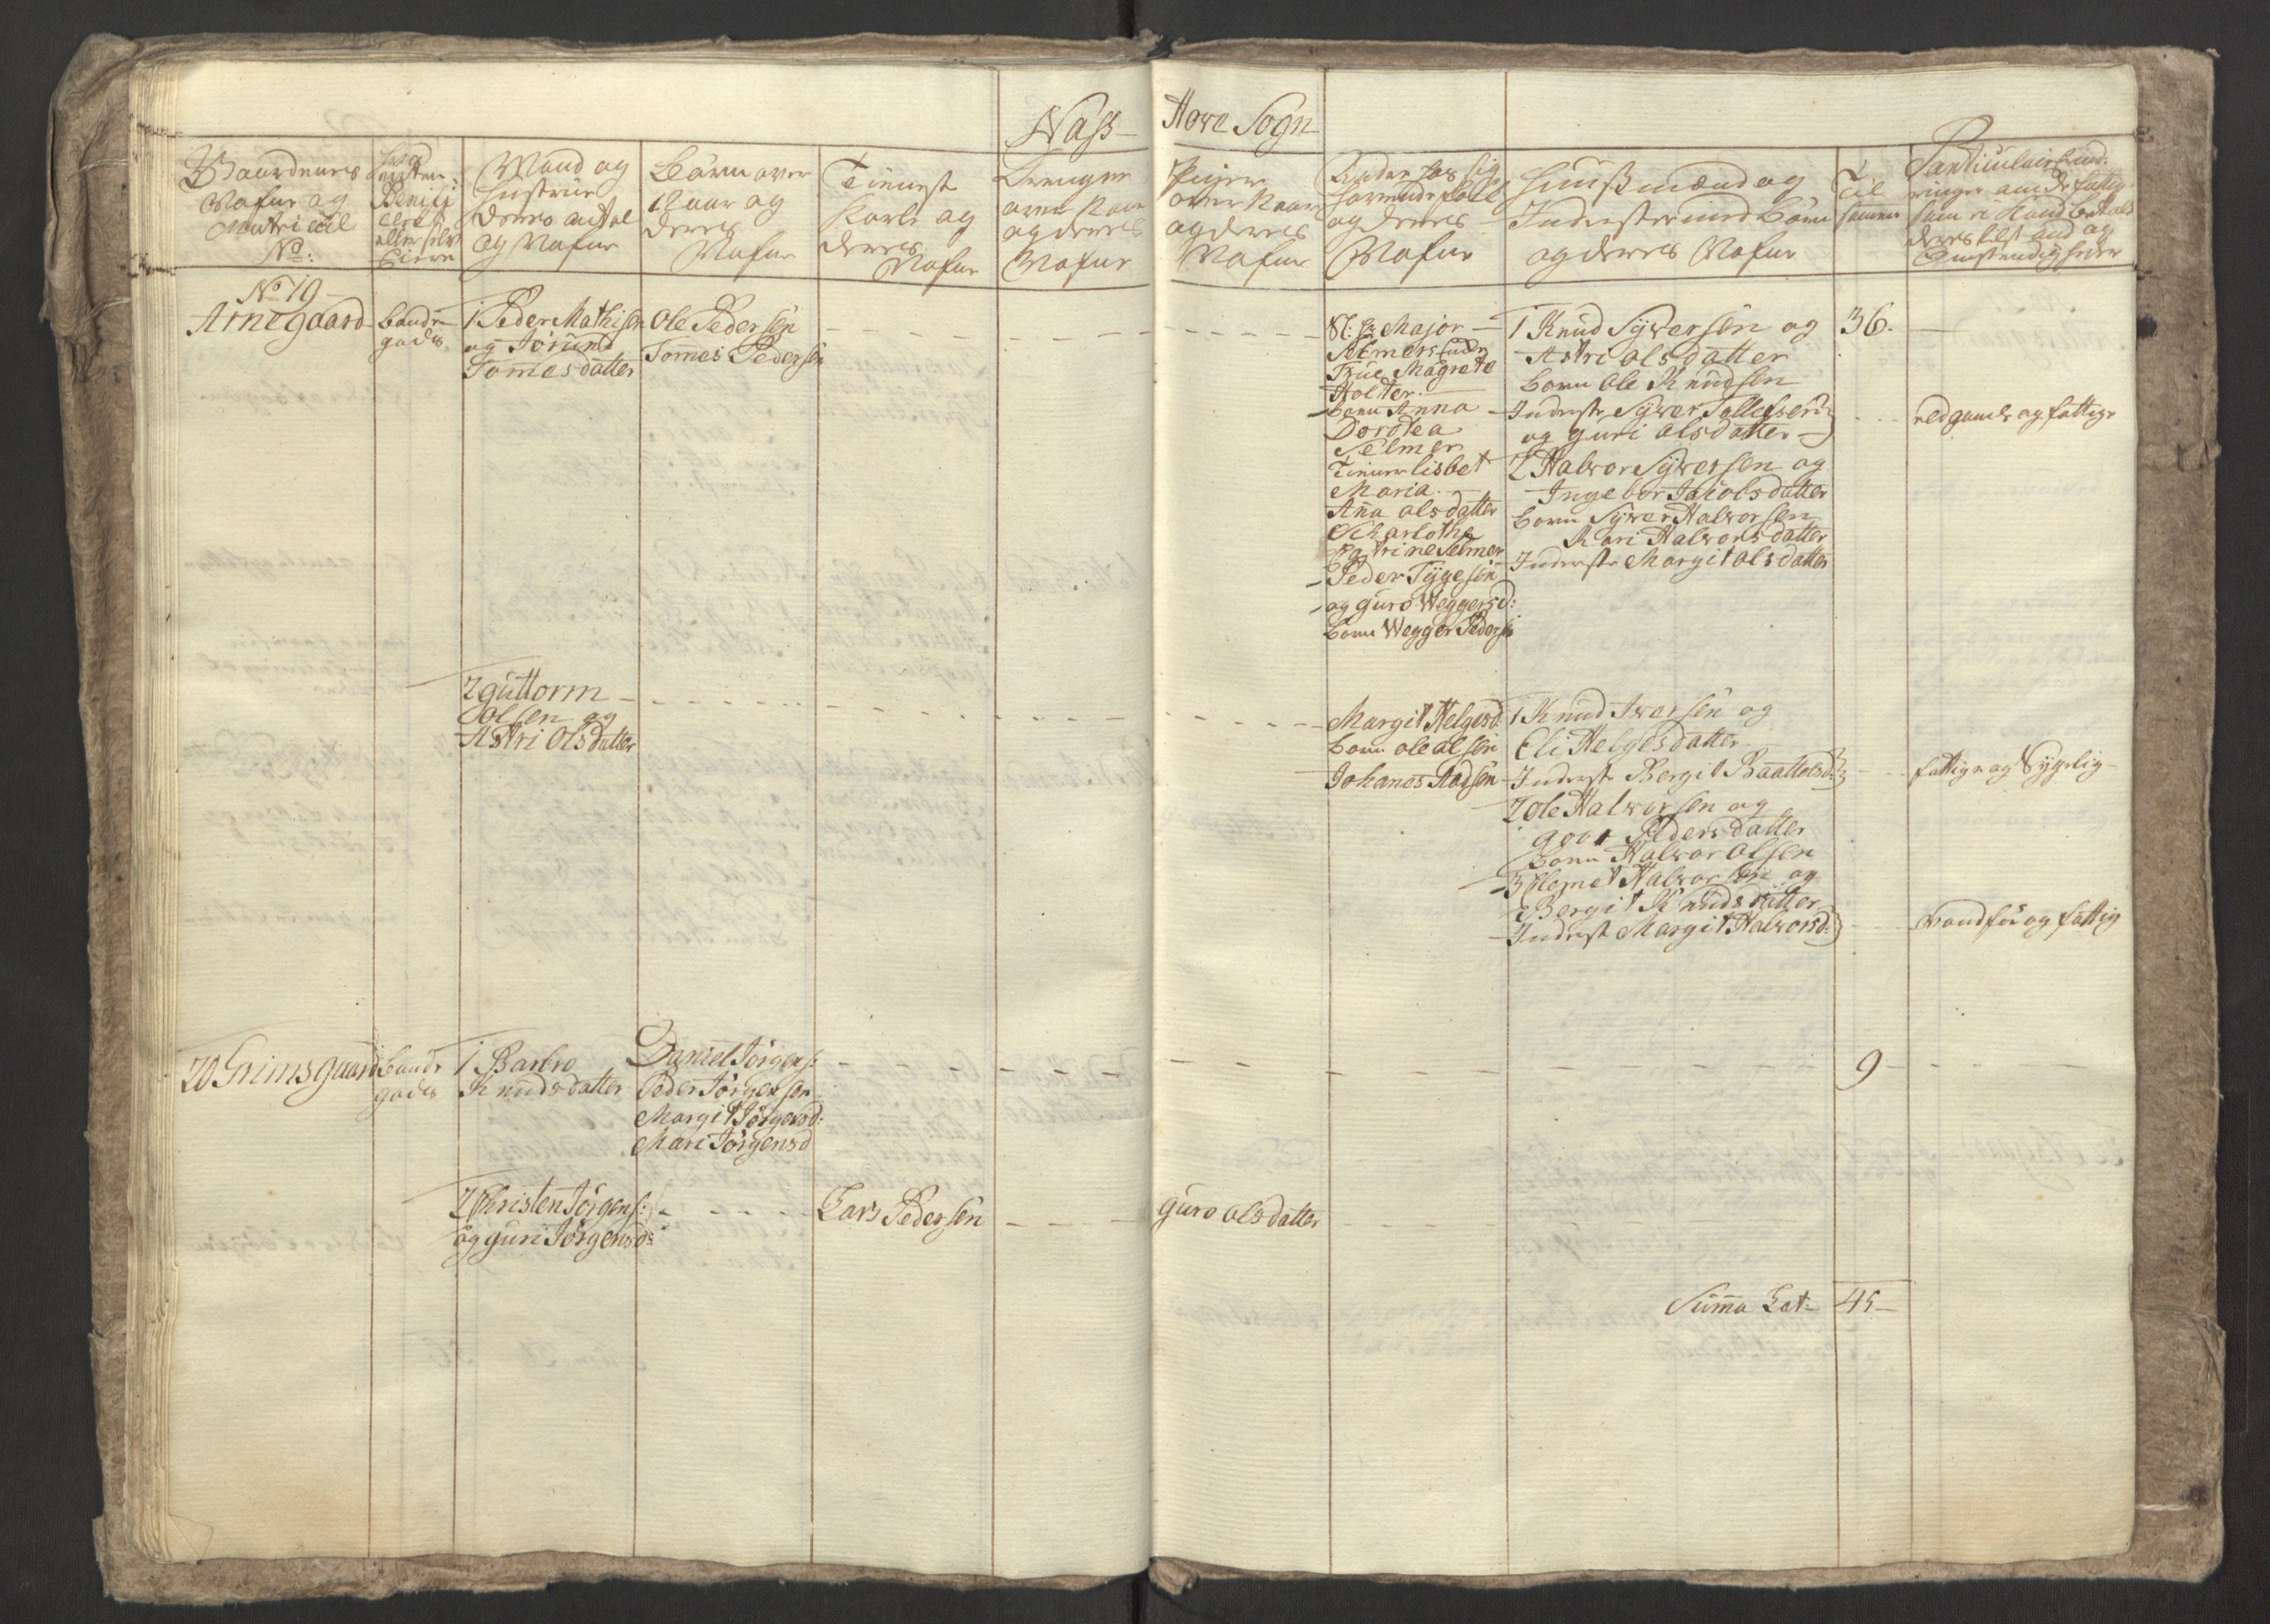 Nass-
Hove Sogn
Gaardenes
Nafne og
Matricul
No:
Benifi
eller selv
Eiere
Mand og
Hustrue
deres antal
og Nafne
Børn over
12 aar og
deres
Nafne
Tienest
Karle og
deres
Nafne
Drenge
over
og deres
Nafne
Piger
over
og deres
Nafne
Andre hos sig
havende folk
og deres
Nafne
Huusmænd og
Inderster med børn
og deres Nafne
Til
sammen
deres tilstand og
Omstendigheder
No 19
Arnegaard
bonde
gods
1 Peder Mathisen
og Jorund
Tomesdatter
Ole Pedersen
Tomes Pedersen
Sl: Hr Major
Selmers Enke
Frue Magrete
Holter
børn Anna
Dorotea
Selmer
Tiener Lisbet
Maria
Anna Olsdatter
Scharlotha
Katrine Selmer
Peder Tygesen
og Guro Weggersd:
børn Wegger Peders:
1 Knud Sywersen og
Astri Olsdatter
børn Ole Knudsen
Inderste Sywer Tollefsen
og Guri Olsdatter
2 Halvor Sywersen og
Ingebor Jacobsdatter
børn Sywer Halvorsen
Kari Halvorsdatter
Inderste Margit Olsdatter
36.
eldgamle og fattige
2 Guttorm
Olsen og
Astri Olsdatter
Margit Helgesd:
børn Ole Olsen
Johanes Aadsen
1 Knud Iwersen og
Eli Helgesdatter
Inderste Bergit Baattolsd:
2 Ole Halvorsen og
Goor Pedersdatter
børn Halvor Olsen
3 Clemet Halvorsen og
Bergit Knudsdatter
Inderst Margit Halvorsd:
fattig og Sygelig
Vanfør og fattig
20 Grimsgaard
bonde
gods
1 Barbro
Knudsdatter
Daniel Jørgens:
Peder Jørgensen
Margit Jørgensd:
Mari Jørgensd
9
2 Christen Jørgens:
og Guri Jørgensd:
Lars Pedersen
Guro Olsdatter
Summa Lat:
45